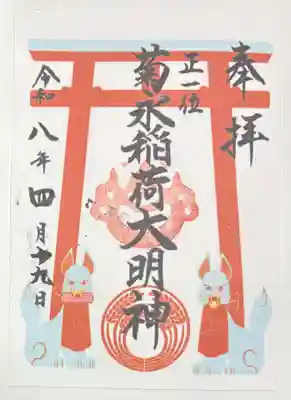 奉拝
正一位
菊水稲荷大明神
令和八年四月十九日